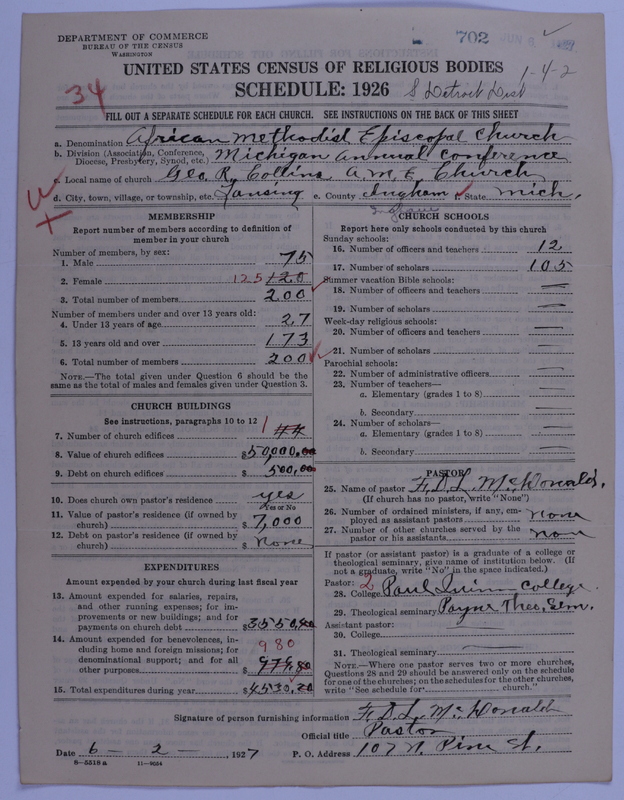 DEPARTMENT OF COMMERCE
BUREAU OF THE CENSUS
WASHINGTON
702
UNITED STATES CENSUS OF RELIGIOUS BODIES
1-4-2
34
SCHEDULE: 1926
S Detroit Dist
FILL OUT A SEPARATE SCHEDULE FOR EACH CHURCH. SEE INSTRUCTIONS ON THE BACK OF THIS SHEET
a. Denomination African Methodist Episcopal Church
b. Division (Association, Conference, Diocese, Presbytery, Synod, etc.) Michigan Annual Conference
c. Local name of church Geo. R. Collins A.M.E. Church
d. City, town, village, or township, etc. Lansing e. County Ingham f. State Mich.
MEMBERSHIP
Report number of members according to definition of
member in your church
Number of members, by sex:
1. Male 75
2. Female 125 120
3. Total number of members 200
Number of members under and over 13 years old:
4. Under 13 years of age 27
5. 13 years old and over 173
6. Total number of members 200
NOTE.—The total given under Question 6 should be
same as the total of males and females given under Question 3.
CHURCH BUILDINGS
See instructions, paragraphs 10 to 12
7. Number of church edifices 1
8. Value of church edifices $50,000.00
9. Debt on church edifices $ 500.00
10. Does church own pastor's residence yes
Yes or No
11. Value of pastor's residence (if owned by
church) $ 7,000
12. Debt on pastor's residence (if owned by
church) $ None
EXPENDITURES
Amount expended by your church during last fiscal year
13. Amount expended for salaries, repairs,
and other running expenses; for im-
provements or new buildings; and for
payments on church debt $3550.40
14. Amount expended for benevolences, in-
cluding home and foreign missions; for
denominational support; and for all
other purposes 980 $979.80
15. Total expenditures during year $4530.20
CHURCH SCHOOLS
Report here only schools conducted by this church
Sunday schools:
16. Number of officers and teachers 12
17. Number of scholars 105
Summer vacation Bible schools:
18. Number of officers and teachers —
19. Number of scholars —
Week-day religious schools:
20. Number of officers and teachers —
21. Number of scholars —
Parochial schools:
22. Number of administrative officers —
23. Number of teachers—
a. Elementary (grades 1 to 8) —
b. Secondary —
24. Number of scholars—
a. Elementary (grades 1 to 8) —
b. Secondary —
PASTOR
25. Name of pastor F. D. L. McDonald.
(If church has no pastor, write "None")
26. Number of ordained ministers, if any, em-
ployed as assistant pastors none
27. Number of other churches served by the
pastor or his assistants non
If pastor (or assistant pastor) is a graduate of a college or
theological seminary, give name of institution below. (If
not a graduate, write "No" in the space indicated.)
Pastor: 2
28. College Paul Quinn College
29. Theological seminary Payne Theo. Sem.
Assistant pastor:
30. College —
31. Theological seminary —
NOTE.—Where one pastor serves two or more churches,
Questions 28 and 29 should be answered only on the schedule
for one of the churches; on the schedules for the other churches,
write "See schedule for church."
Signature of person furnishing information F. D. L. McDonald
Official title Pastor
Date 6 – 2 –, 1927 P. O. Address 107 N. Pine St.
8—5518 a 11—9054